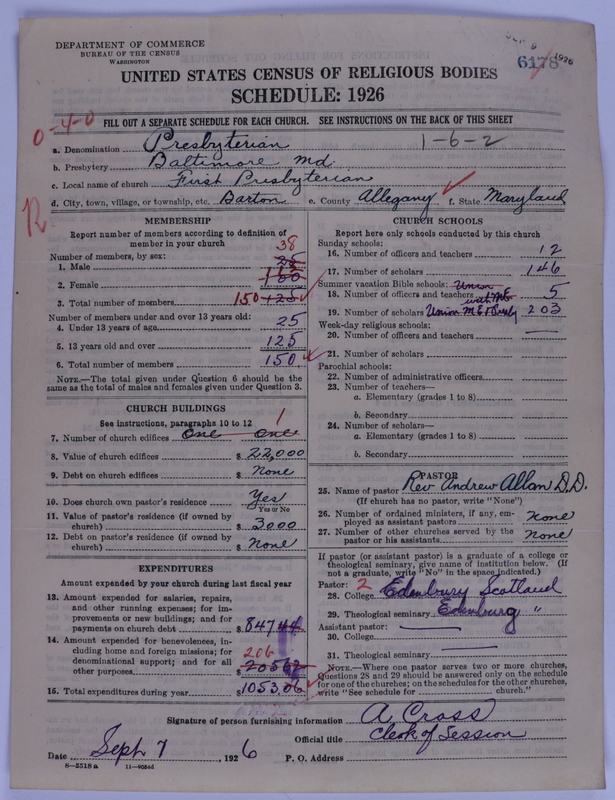 DEPARTMENT OF COMMERCE
BUREAU OF THE CENSUS
WASHINGTON
6178 1926
UNITED STATES CENSUS OF RELIGIOUS BODIES
SCHEDULE: 1926
FILL OUT A SEPARATE SCHEDULE FOR EACH CHURCH. SEE INSTRUCTIONS ON THE BACK OF THIS SHEET
0-4-0
1-6-2
a. Denomination Presbyterian
b. Presbytery Baltimore Md.
c. Local name of church First Presbyterian
d. City, town, village, or township, etc. Barton e. County Allegany f. State Maryland
R
MEMBERSHIP
Report number of members according to definition of
member in your church
Number of members, by sex: 38
1. Male 25
112
2. Female 100
3. Total number of members 150 125
Number of members under and over 13 years old:
4. Under 13 years of age 25
5. 13 years old and over 125
6. Total number of members 150
NOTE.—The total given under Question 6 should be the
same as the total of males and females given under Question 3.
CHURCH BUILDINGS
See instructions, paragraphs 10 to 12
1
7. Number of church edifices One One
8. Value of church edifices $ 22,000
9. Debt on church edifices $ None
10. Does church own pastor's residence Yes
Yes or No
11. Value of pastor's residence (if owned by
church) $ 3000
12. Debt on pastor's residence (if owned by
church) $ None
EXPENDITURES
Amount expended by your church during last fiscal year
13. Amount expended for salaries, repairs,
and other running expenses; for im-
provements or new buildings; and for
payments on church debt $ 84744
14. Amount expended for benevolences, in-
cluding home and foreign missions; for
denominational support; and for all
206
other purposes $ 20562
15. Total expenditures during year $ 1053,06
CHURCH SCHOOLS
Report here only schools conducted by this church
Sunday schools:
16. Number of officers and teachers 12
17. Number of scholars 146
Summer vacation Bible schools: Union
18. Number of officers and teachers with ME 5
19. Number of scholars Union M.E & Presby 203
Week-day religious schools:
20. Number of officers and teachers
21. Number of scholars
Parochial schools:
22. Number of administrative officers
23. Number of teachers—
a. Elementary (grades 1 to 8)
b. Secondary
24. Number of scholars—
a. Elementary (grades 1 to 8)
b. Secondary
PASTOR
25. Name of pastor Rev Andrew Allan D.D.
(If church has no pastor, write "None")
26. Number of ordained ministers, if any, em-
ployed as assistant pastors none
27. Number of other churches served by the
pastor or his assistants none
If pastor (or assistant pastor) is a graduate of a college or
theological seminary, give name of institution below. (If
not a graduate, write "No" in the space indicated.)
Pastor: 2
28. College Edenbury Scotland
29. Theological seminary Edenburg "
Assistant pastor:
30. College
31. Theological seminary
NOTE.—Where one pastor serves two or more churches,
Questions 28 and 29 should be answered only on the schedule
for one of the churches; on the schedules for the other churches,
write "See schedule for ______ church."
Signature of person furnishing information A. Cross
Official title Clerk of Session
Date Sept 7, 1926 P. O. Address
8—5518 a